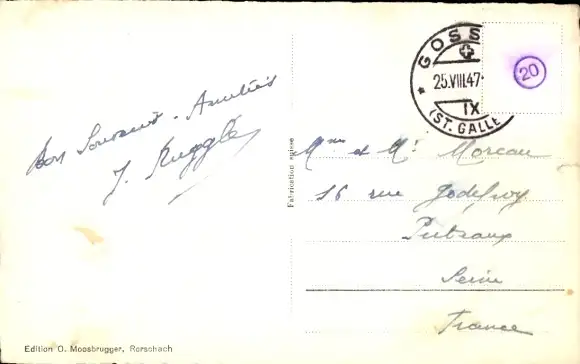 Bon Souvenir - Amitiés
J. Kuggle
GOSS
25.VIII.47-
IX
(ST. GALLE
20
Fabrication suisse
Mme et Mr Moreau
16 rue Godefroy
Puteaux
Seine
France
Edition O. Moosbrugger, Rorschach